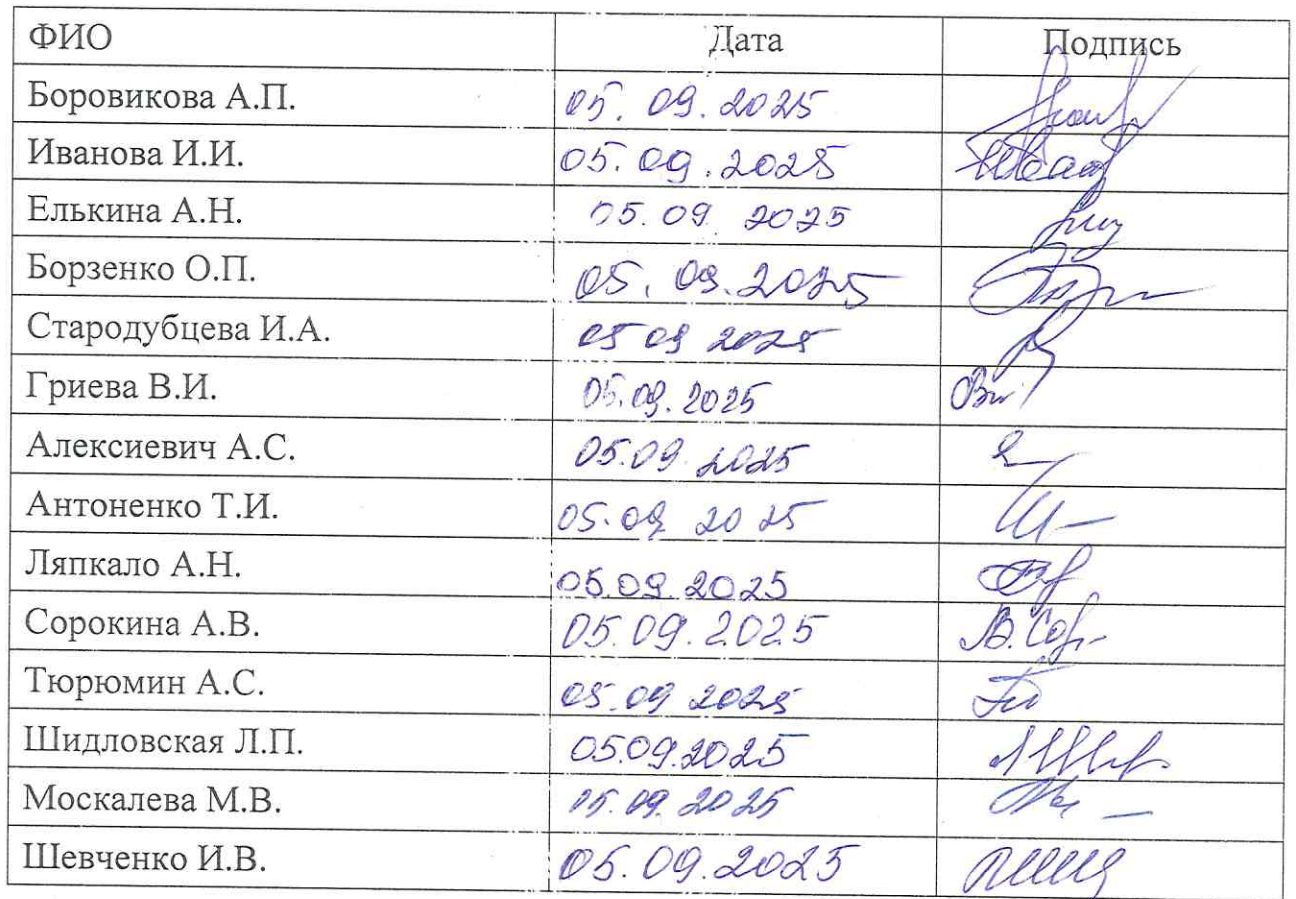 ФИО Дата Подпись
Боровикова А.П. 05.09.2025
Иванова И.И. 05.09.2025
Елькина А.Н. 05.09 2025
Борзенко О.П. 05.09.2025
Стародубцева И.А. 05 09 2025
Гриева В.И. 05.09.2025
Алексиевич А.С. 05.09 2025
Антоненко Т.И. 05.09 2025
Ляпкало А.Н. 05.09 2025
Сорокина А.В. 05.09.2025
Тюрюмин А.С. 05.09 2025
Шидловская Л.П. 05.09.2025
Москалева М.В. 05.09.2025
Шевченко И.В. 05.09.2025